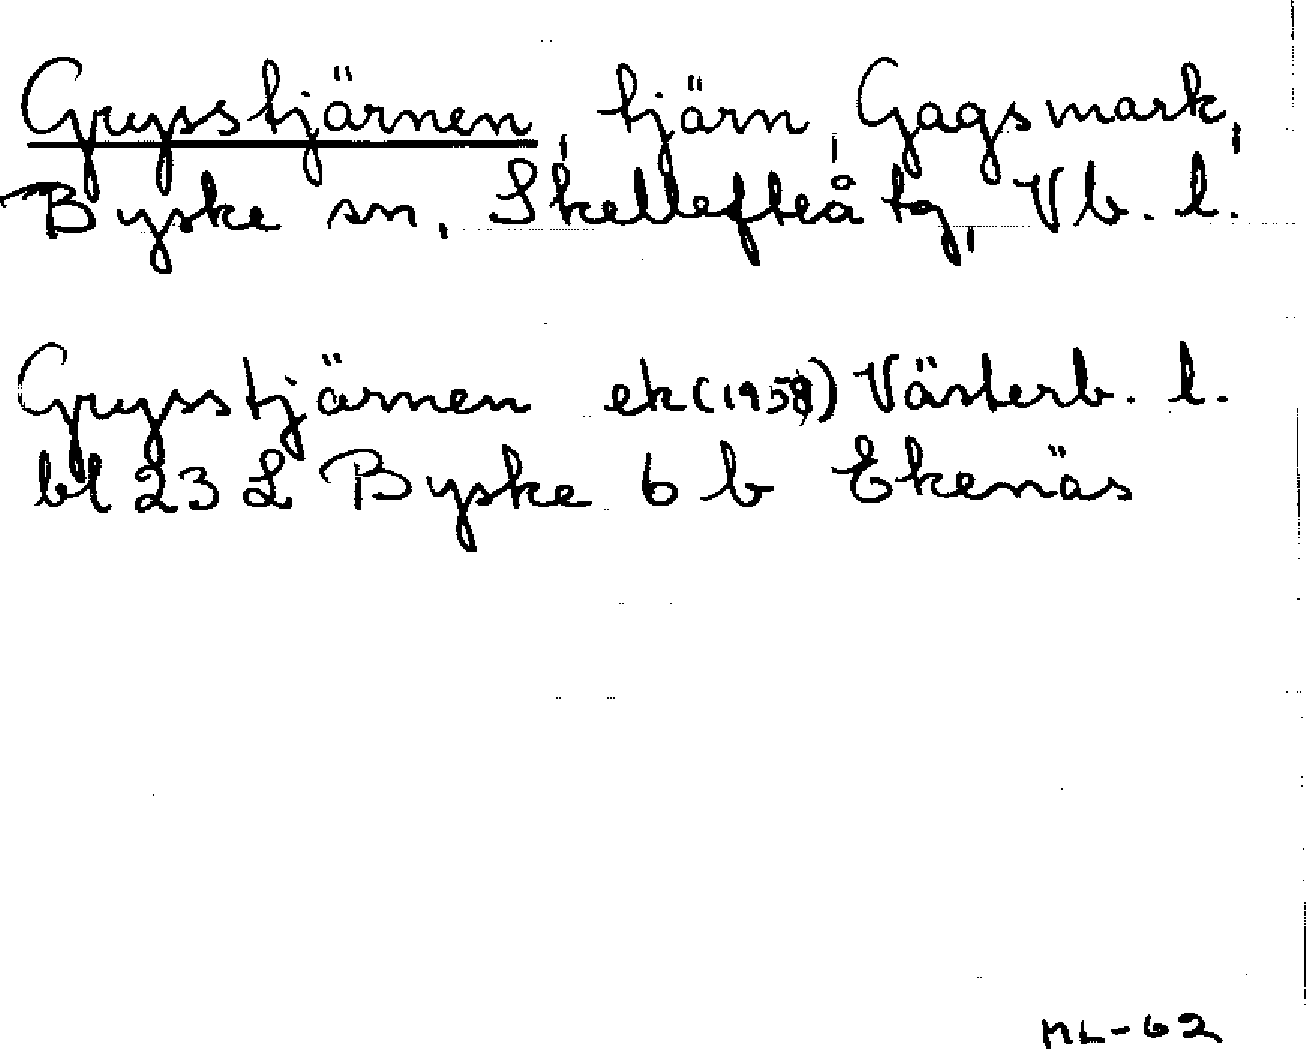 Grysstjärnen, tjärn, Gagsmark,
Byske sn, Skellefteå tg, Vb. l.
Grysstjärnen ek (1958) Västerb. l.
bl 23 L Byske 6 b Ekenäs
ML-62